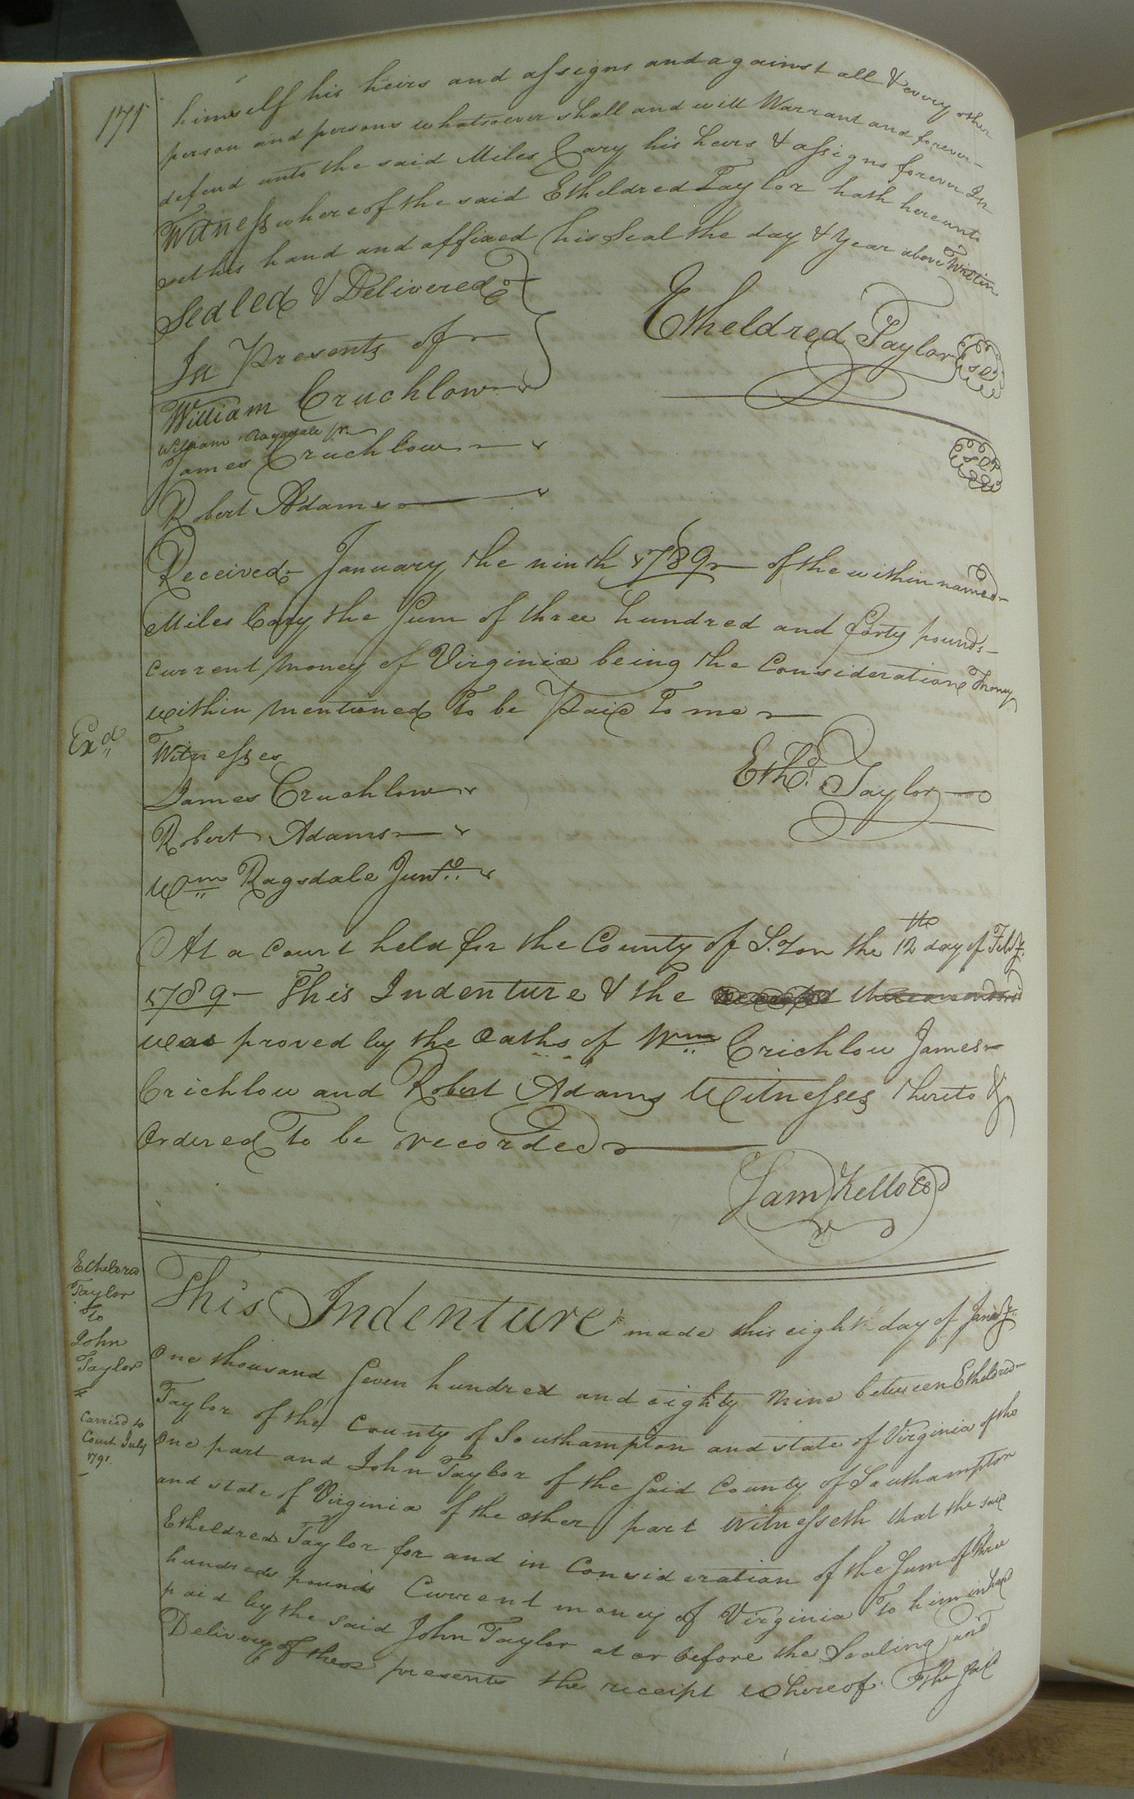 171
himself his heirs and assigns and against all & every other
person and persons whatsoever shall and will Warrant and forever
defend unto the said Miles Cary his heirs & assigns forever In
Witness whereof the said Etheldred Taylor hath hereunto
set his hand and affixed his Seal the day & Year above Written
Sealed & Delivered
In Presents of
Etheldred Taylor Seal
William Cruchlow
William Ragsdale Jr.
James Cruchlow
Seal
Robert Adams
Received January the ninth 1789 of the within named
Miles Cary the Sum of three hundred and forty pounds
current money of Virginia being the Consideration money
within mentioned To be Paid To me
Exd
Witnesses
Ethd. Taylor
James Cruchlow
Robert Adams
Wm Ragsdale Junr.
At a Court held for the County of S.ton the 12 the day of Feby
1789 This Indenture & the
was proved by the Oaths of Wm Crichlow James
Crichlow and Robert Adams Witnesses thereto &
Ordered To be recorded
Sam Kello CC
Etheldred
Taylor
To
John
Taylor
Carried to
Court July
1791
This Indenture made this eight day of Janry
One thousand Seven hundred and eighty nine between Etheldred
Taylor of the County of Southampton and state of Virginia of the
One part and John Taylor of the Said County of Southampton
and state of Virginia of the other part Witnesseth that the said
Etheldred Taylor for and in Consideration of the Sum of three
hundred pounds Current money of Virginia To him in hand
paid by the said John Taylor at or before the Sealing and
Delivery of these presents the receipt whereof the Said